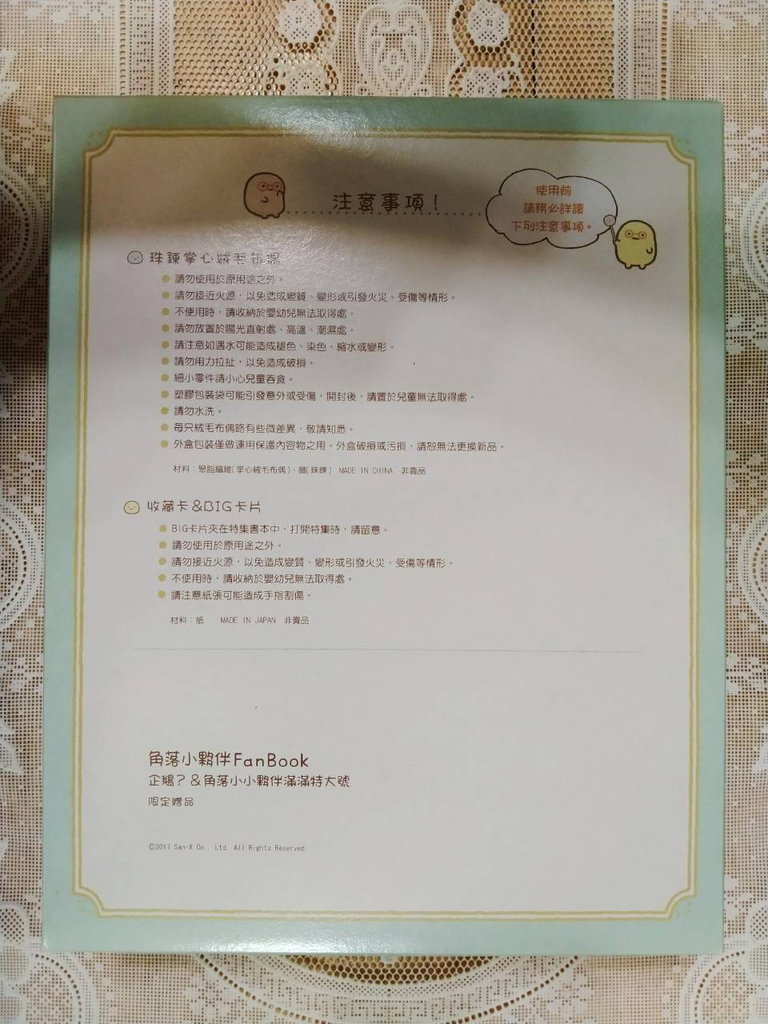 注意事項！
使用前
請務必詳讀
下列注意事項。
珠鍊掌心絨毛布偶
請勿使用於原用途之外。
請勿接近火源，以免造成變質、變形或引發火災、受傷等情形。
不使用時，請收納於嬰幼兒無法取得處。
請勿放置於陽光直射處、高溫、潮濕處。
請注意如遇水可能造成褪色、染色、縮水或變形。
請勿用力拉扯，以免造成破損。
細小零件請小心兒童吞食。
塑膠包裝袋可能引發意外或受傷，開封後，請置於兒童無法取得處。
請勿水洗。
每只絨毛布偶略有些微差異，敬請知悉。
外盒包裝僅做運用保護內容物之用，外盒破損或污損，請恕無法更換新品。
材料：聚酯纖維(掌心絨毛布偶)、鐵(珠鍊) MADE IN CHINA 非賣品
收藏卡＆BIG卡片
BIG卡片夾在特集書本中，打開特集時，請留意。
請勿使用於原用途之外。
請勿接近火源，以免造成變質、變形或引發火災、受傷等情形。
不使用時，請收納於嬰幼兒無法取得處。
請注意紙張可能造成手指割傷。
材料：紙 MADE IN JAPAN 非賣品
角落小夥伴FanBook
企鵝？＆角落小小夥伴滿滿特大號
限定贈品
©2017 San-X Co., Ltd. All Rights Reserved.